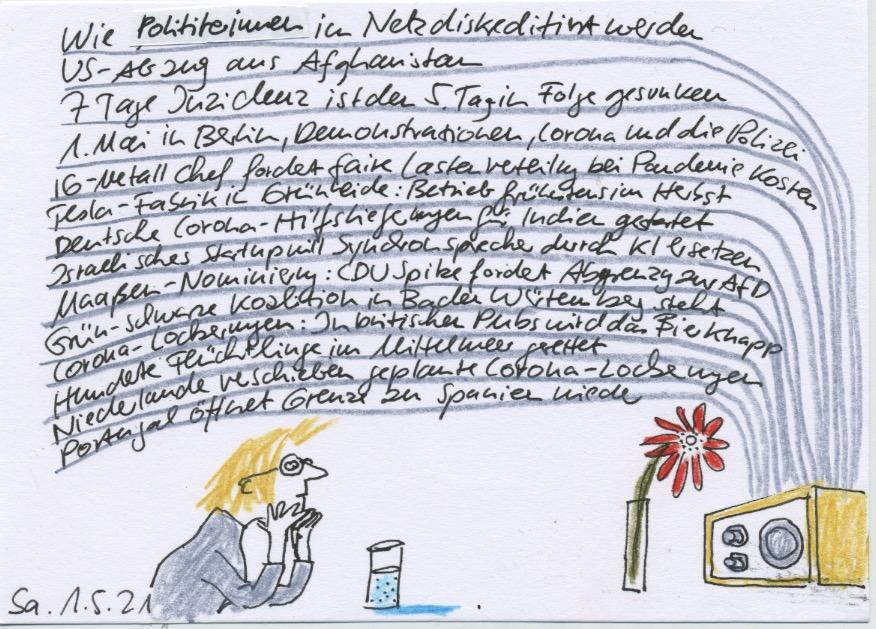 Wie Politikerinnen im Netz diskreditiert werden
US-Abzug aus Afghanistan
7 Tage Inzidenz ist den 5. Tag in Folge gesunken
1. Mai in Berlin, Demonstrationen, Corona und die Polizei
IG-Metall Chef fordert faire Lastenverteilung bei Pandemie Kosten
Tesla-Fabrik in Grünheide: Betrieb frühstens im Herbst
Deutsche Corona-Hilfslieferungen für Indien gestartet
Israelisches Startup will Synchronsprecher durch KI ersetzen
Maaßen-Nominierung: CDU Spitze fordert Abgrenzung zur AfD
Grün-schwarze Koalition in Baden Würtemberg steht
Corona-Lockerungen: In britischen Pubs wird das Bier knapp
Hunderte Flüchtlinge im Mittelmeer gerettet
Niederlande verschieben geplante Corona-Lockerungen
Portugal öffnet Grenze zu Spanien wieder
Sa. 1.5.21